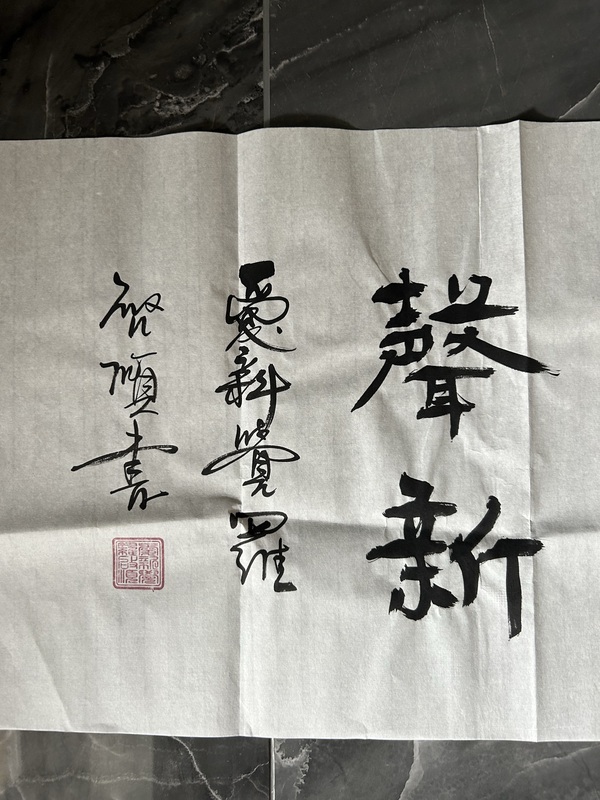 聲新
愛新覺羅
啓順書